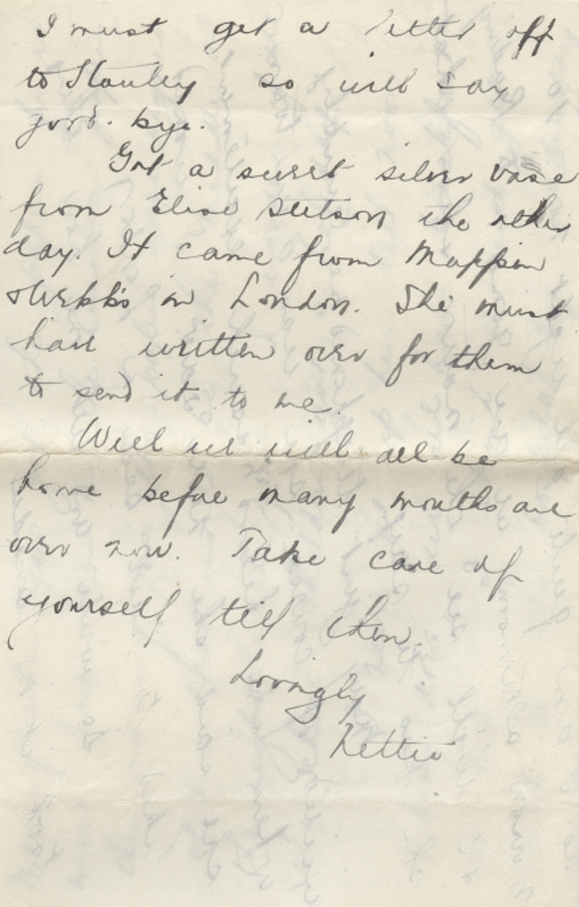 I must get a letter off
to Stanley so will say
good-bye.
Got a sweet silver vase
from Elise Stetson the other
day. It came from Mappin
& Webb's in London. She must
have written over for them
to send it to me.
Well we will all be
home before many months are
over now. Take care of
yourself till then.
Lovingly
Nettie